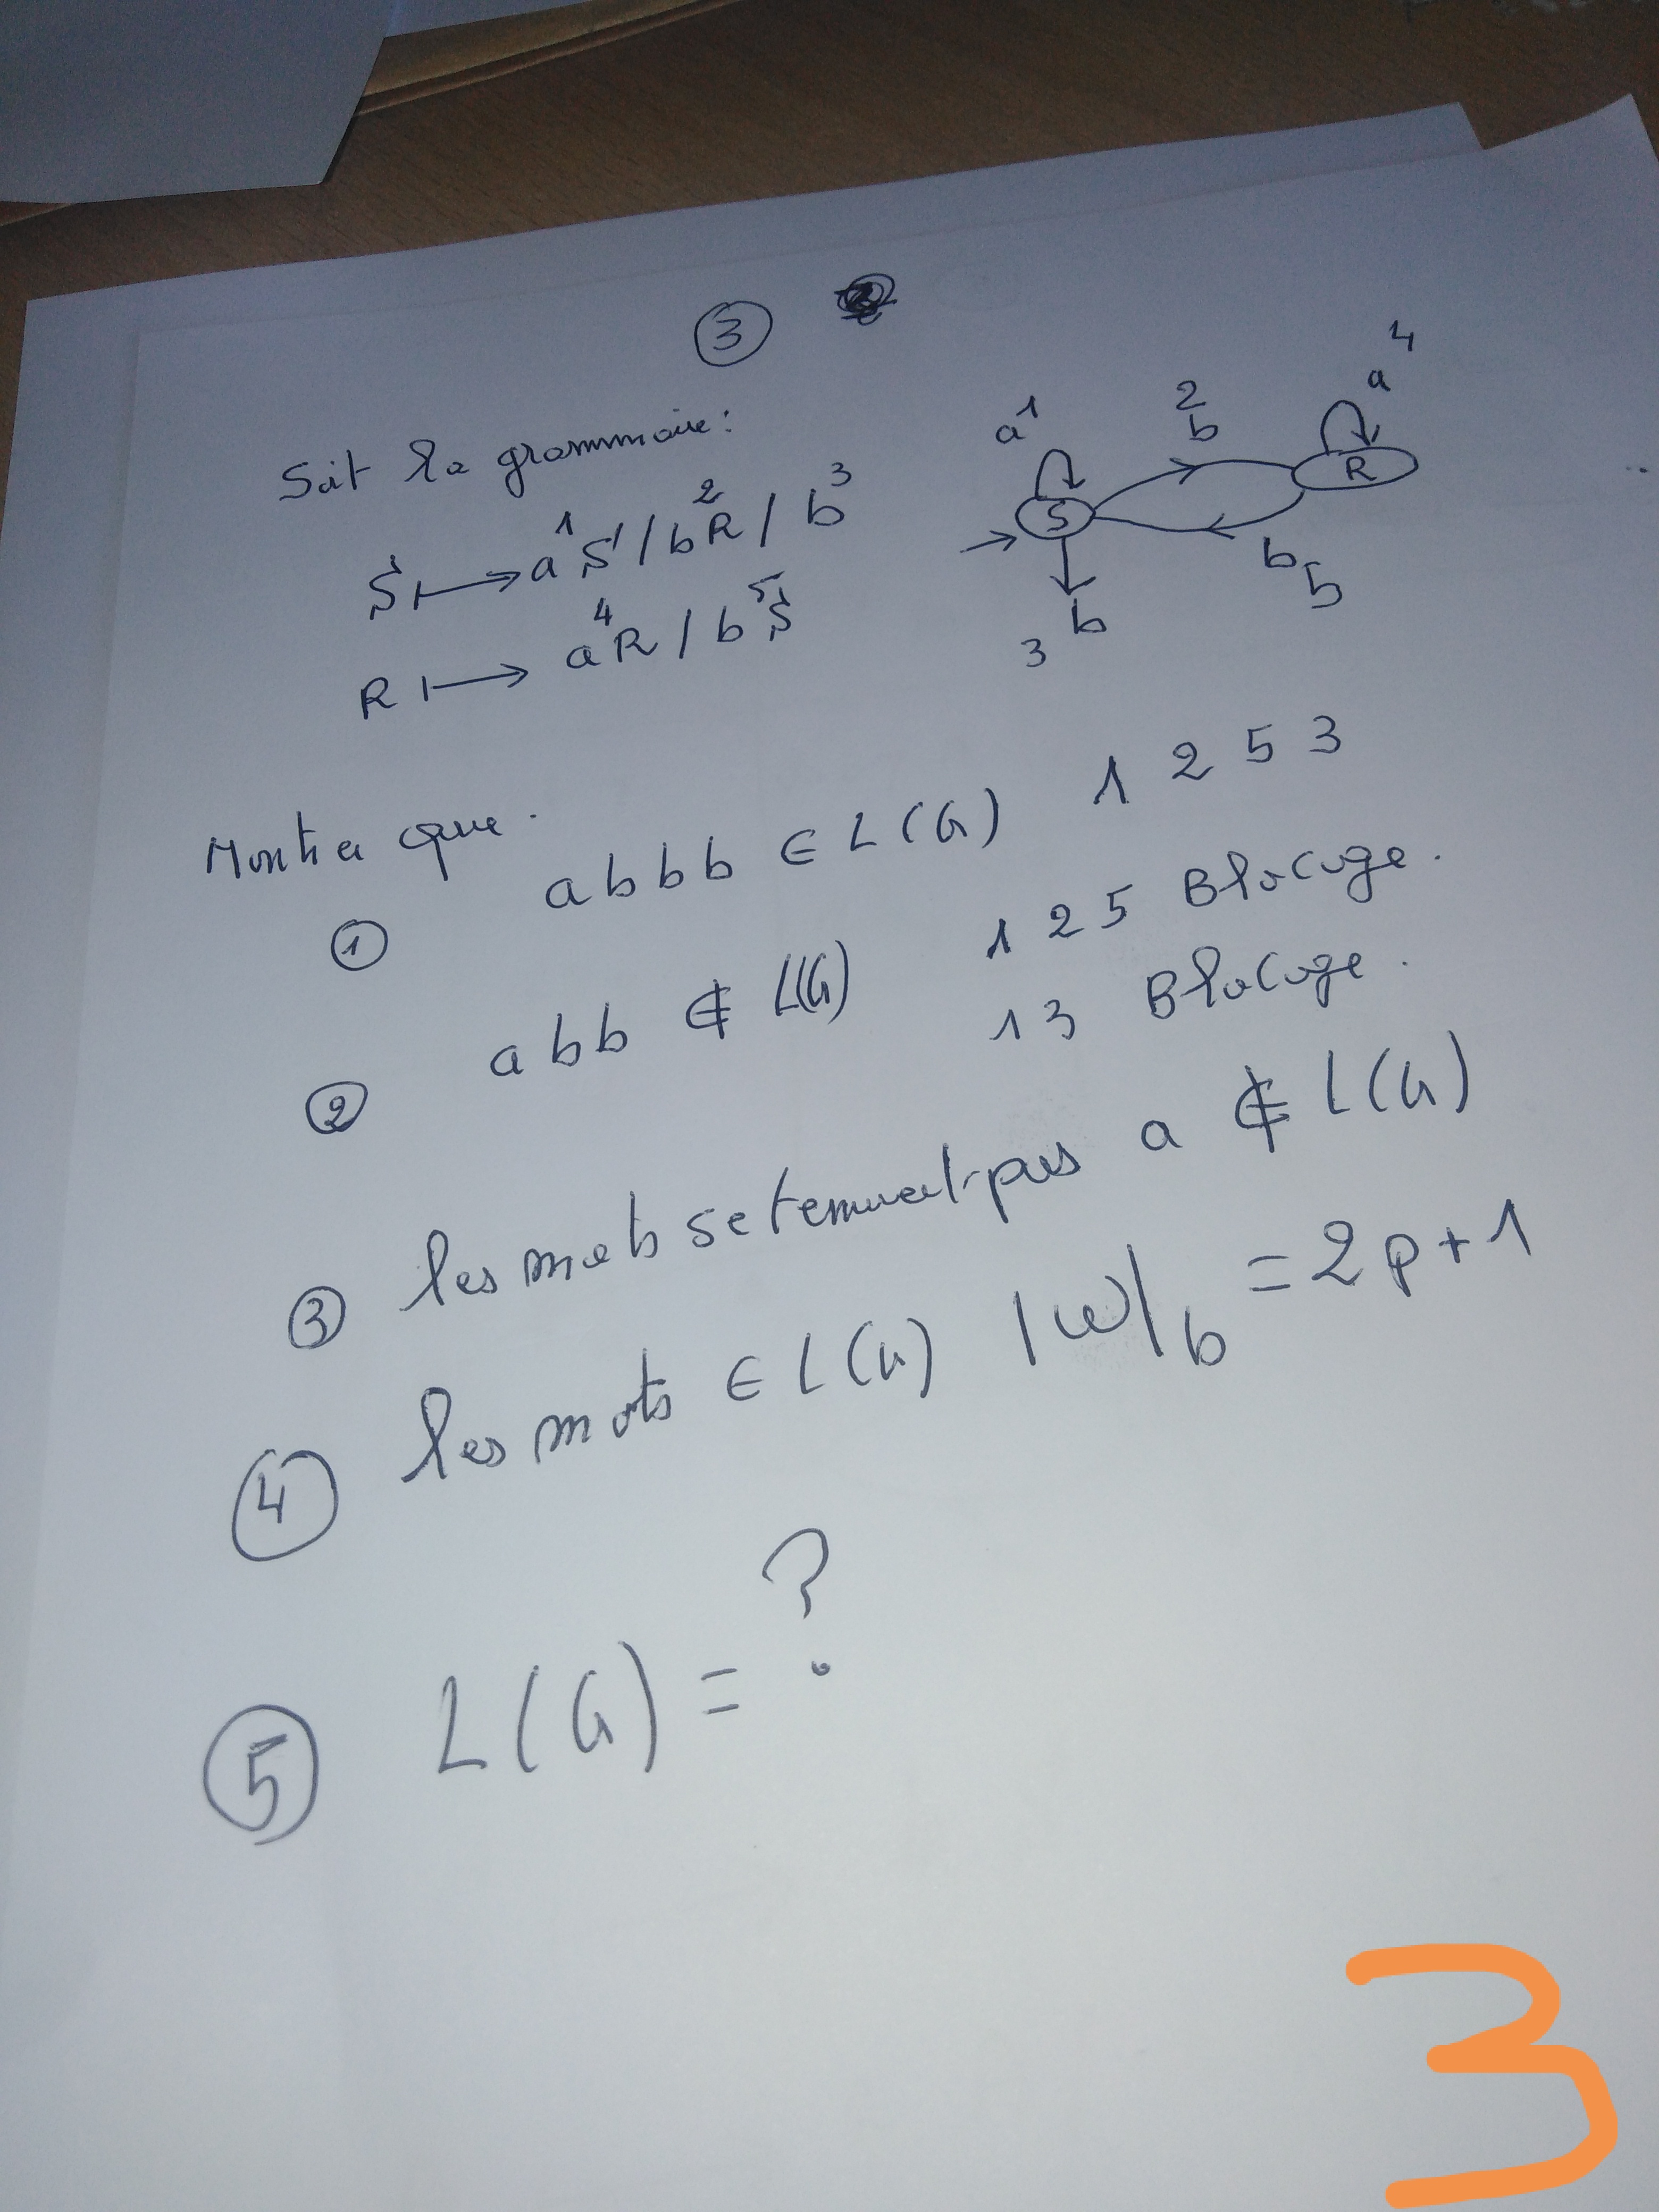 3
Soit la grammaire:
S ⟼ a¹S / b²R / b³
R ⟼ a⁴R / b⁵S
a 1
2 b
a 4
S
R
b 5
3 b
Montrer que.
① abbb ∈ L(G) 1 2 5 3
② abb ∉ L(G) 1 2 5 Blocage.
1 3 Blocage.
③ les mots se terminant par a ∉ L(G)
④ les mots ∈ L(G) |w|b = 2p+1
⑤ L(G) = ?
3